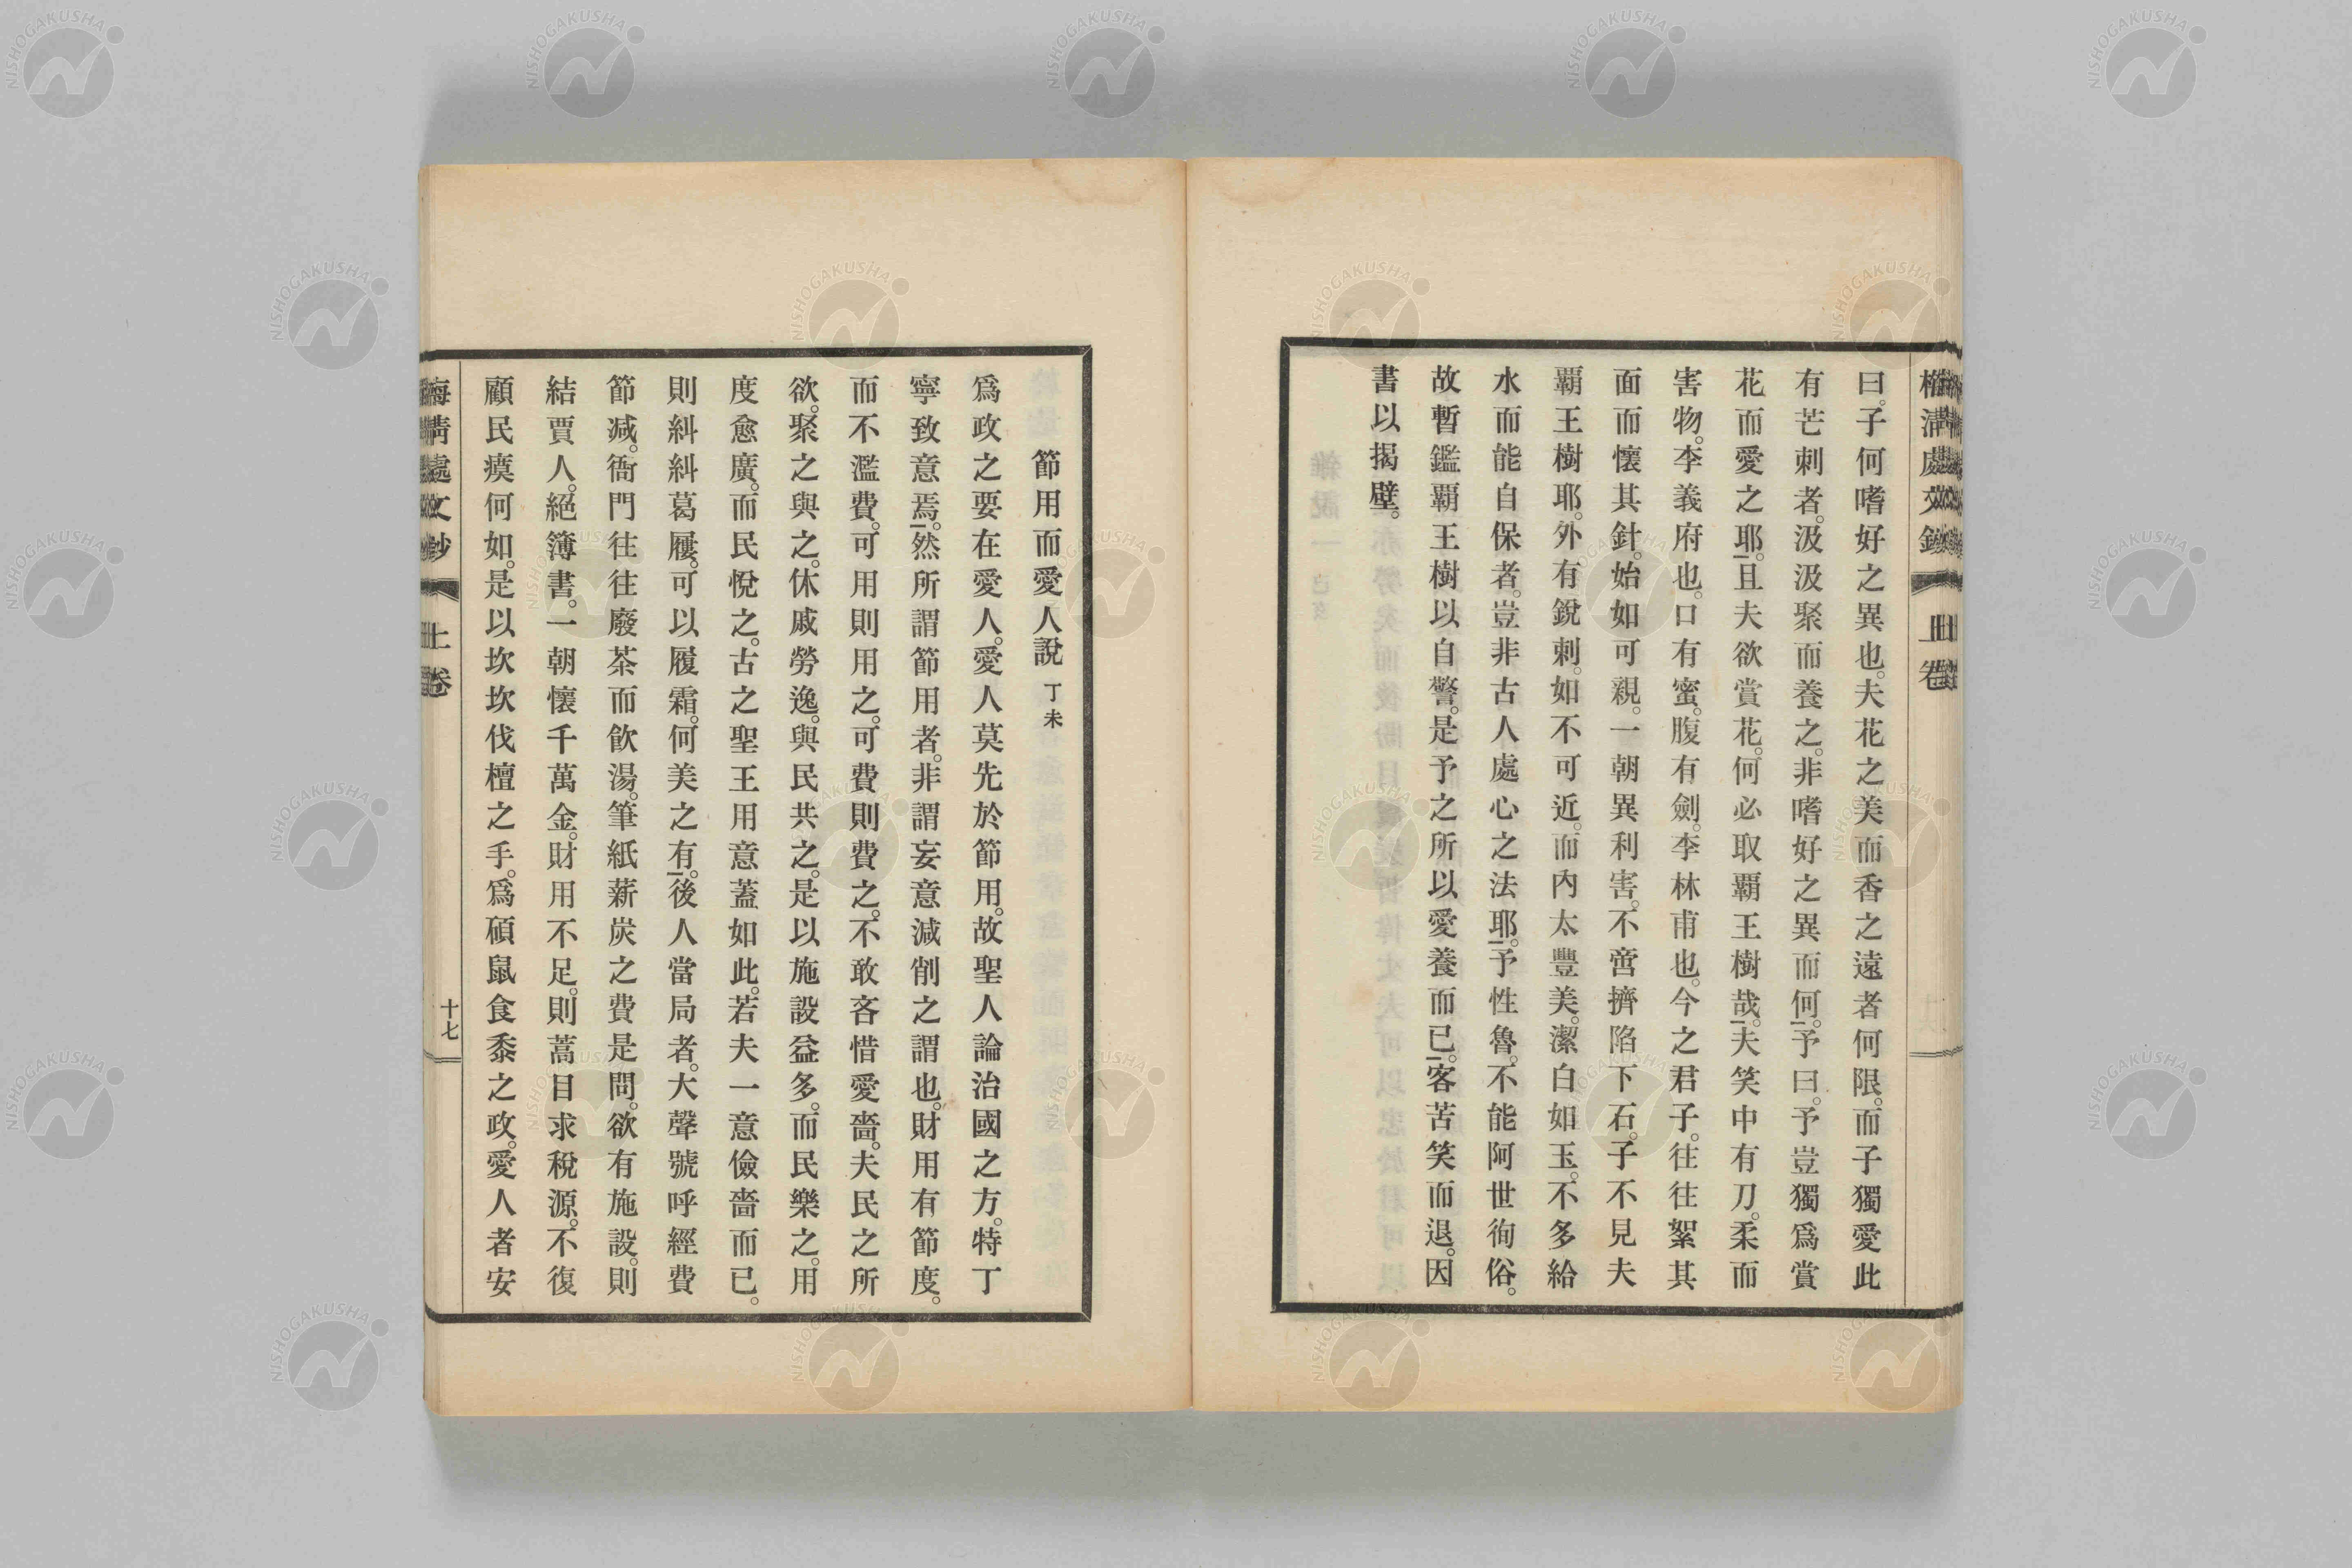 曰。子何嗜好之異也。夫花之美而香之遠者何限。而子獨愛此
有芒刺者。汲汲聚而養之。非嗜好之異而何。予曰。予豈獨爲賞
花而愛之耶。且夫欲賞花。何必取覇王樹哉。夫笑中有刀。柔而
害物。李義府也。口有蜜。腹有劍。李林甫也。今之君子。往往絮其
面而懷其針。始如可親。一朝異利害。不啻擠陷下石。子不見夫
覇王樹耶。外有銳刺。如不可近。而內太豐美。潔白如玉。不多給
水而能自保者。豈非古人處心之法耶。予性魯。不能阿世徇俗。
故暫鑑覇王樹以自警。是予之所以愛養而已。客苦笑而退。因
書以揭壁。
節用而愛人說 丁未
爲政之要在愛人。愛人莫先於節用。故聖人論治國之方。特丁
寧致意焉。然所謂節用者。非謂妄意減削之謂也。財用有節度。
而不濫費。可用則用之。可費則費之。不敢吝惜愛嗇。夫民之所
欲。聚之與之。休戚勞逸。與民共之。是以施設益多。而民樂之。用
度愈廣。而民悅之。古之聖王用意蓋如此。若夫一意儉嗇而已。
則糾糾葛屨。可以履霜。何美之有。後人當局者。大聲號呼經費
節減。衙門往往廢茶而飮湯。筆紙薪炭之費是問。欲有施設。則
結賈人。絕簿書。一朝懷千萬金。財用不足。則蒿目求稅源。不復
顧民瘼何如。是以坎坎伐檀之手。爲碩鼠食黍之政。愛人者安
上卷
十七
NISHOGAKUSHA